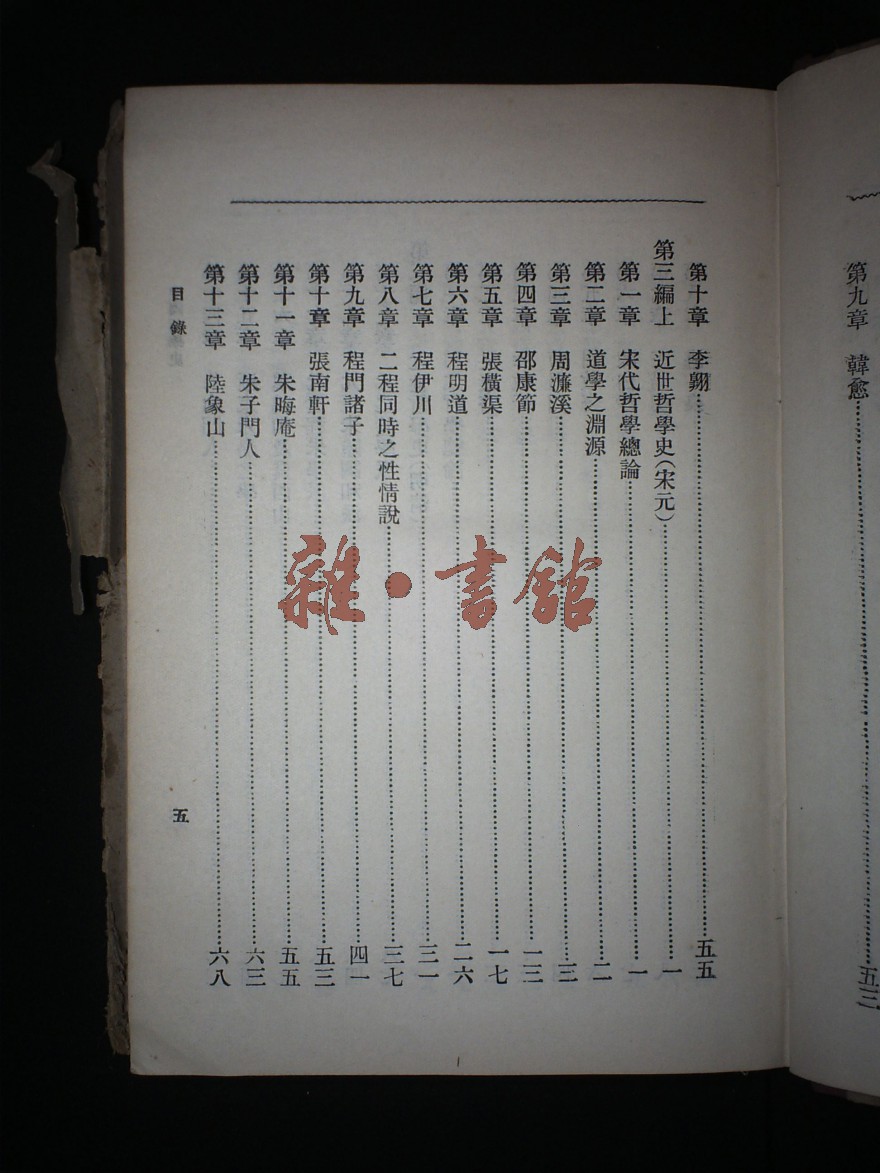 第九章 韓愈……五三
第十章 李翱……五五
第三編上 近世哲學史(宋元)……一
第一章 宋代哲學總論……一
第二章 道學之淵源……二
第三章 周濂溪……三
第四章 邵康節……一三
第五章 張橫渠……一七
第六章 程明道……二六
第七章 程伊川……三一
第八章 二程同時之性情說……三七
第九章 程門諸子……四一
第十章 張南軒……五三
第十一章 朱晦庵……五五
第十二章 朱子門人……六三
第十三章 陸象山……六八
目錄 五
雜•書館